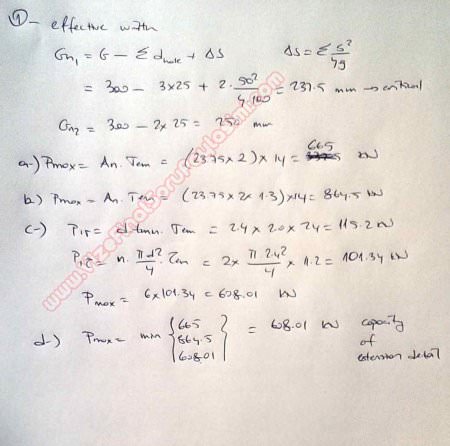 1- effective width
Gn1 = G - Σ dhole + ΔS ΔS = Σ S²/4g
= 300 - 3x25 + 2. 50²/4.100 = 237.5 mm → critical
Gn2 = 300 - 2x25 = 250 mm
a-) Pmax = An. Tem = (23.75x2)x14 = 665 kN
b-) Pmax = An. Tem = (23.75x2x1.3)x14 = 864.5 kN
c-) P1σ = d.tmin. Tem = 2.4 x 2.0 x 24 = 115.2 kN
P1τ = n. πd²/4. Tem = 2x π 2.4²/4 x 11.2 = 101.34 kN
Pmax = 6x101.34 = 608.01 kN
d-) Pmax = min { 665 864.5 608.01 } = 608.01 kN capacity of extension detail
www.rizefmadilorufautosim.com